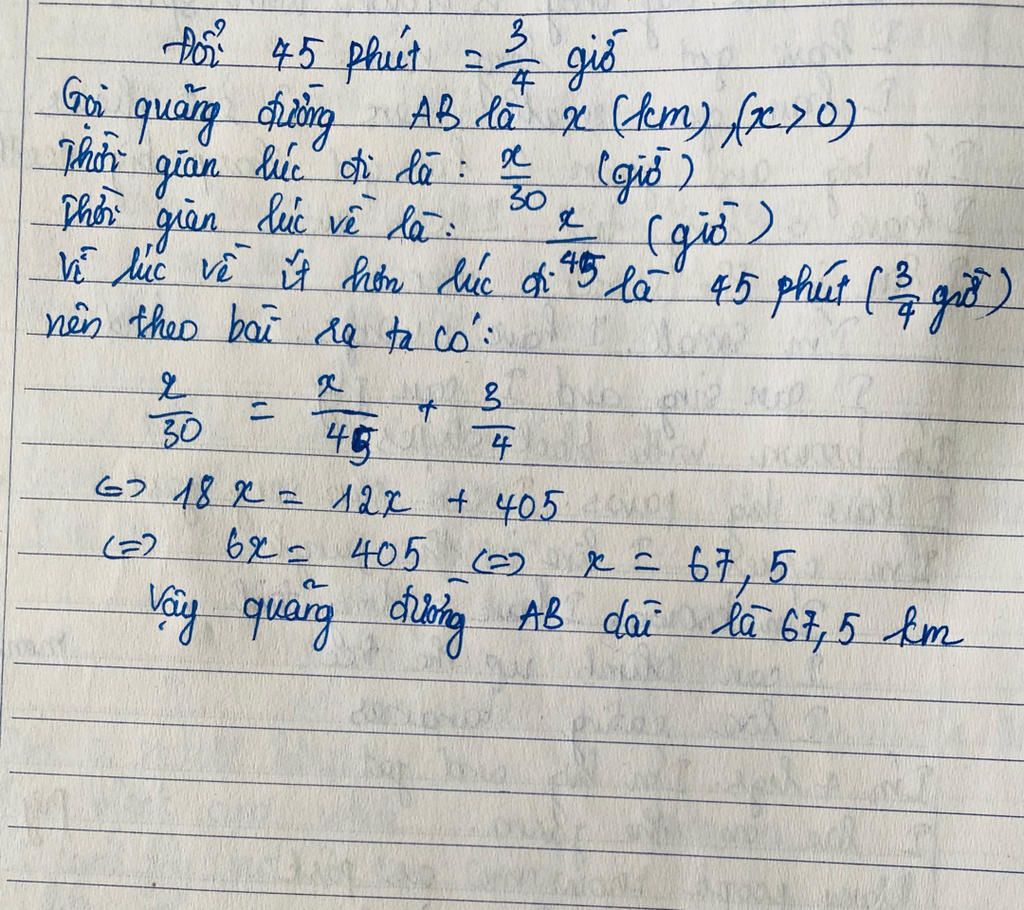 Đổi 45 phút = 3/4 giờ
Gọi quãng đường AB là x (km), (x > 0)
Thời gian lúc đi là: x/30 (giờ)
Thời gian lúc về là: x/45 (giờ)
Vì lúc về ít hơn lúc đi là 45 phút (3/4 giờ)
nên theo bài ra ta có:
x/30 = x/45 + 3/4
<=> 18x = 12x + 405
<=> 6x = 405 <=> x = 67,5
Vậy quãng đường AB dài là 67,5 km